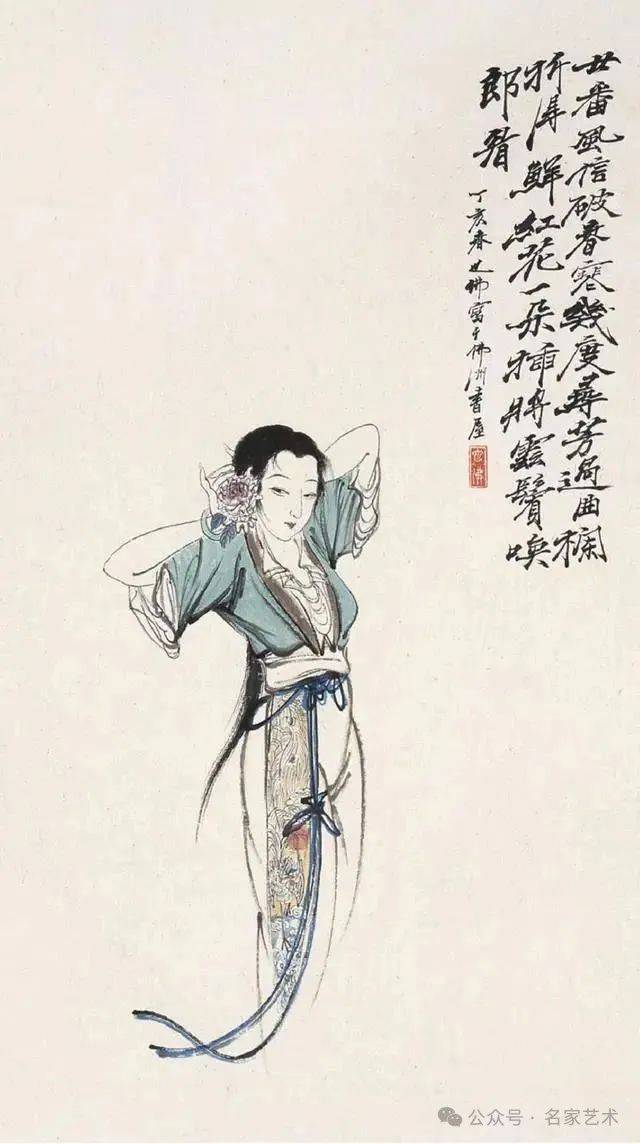 廿番風信破春寒幾度尋芳過曲欄
折得鮮紅花一朵插將雲鬢喚
郎看
丁亥春世佛寫于佛洲書屋
公众号·名家艺术